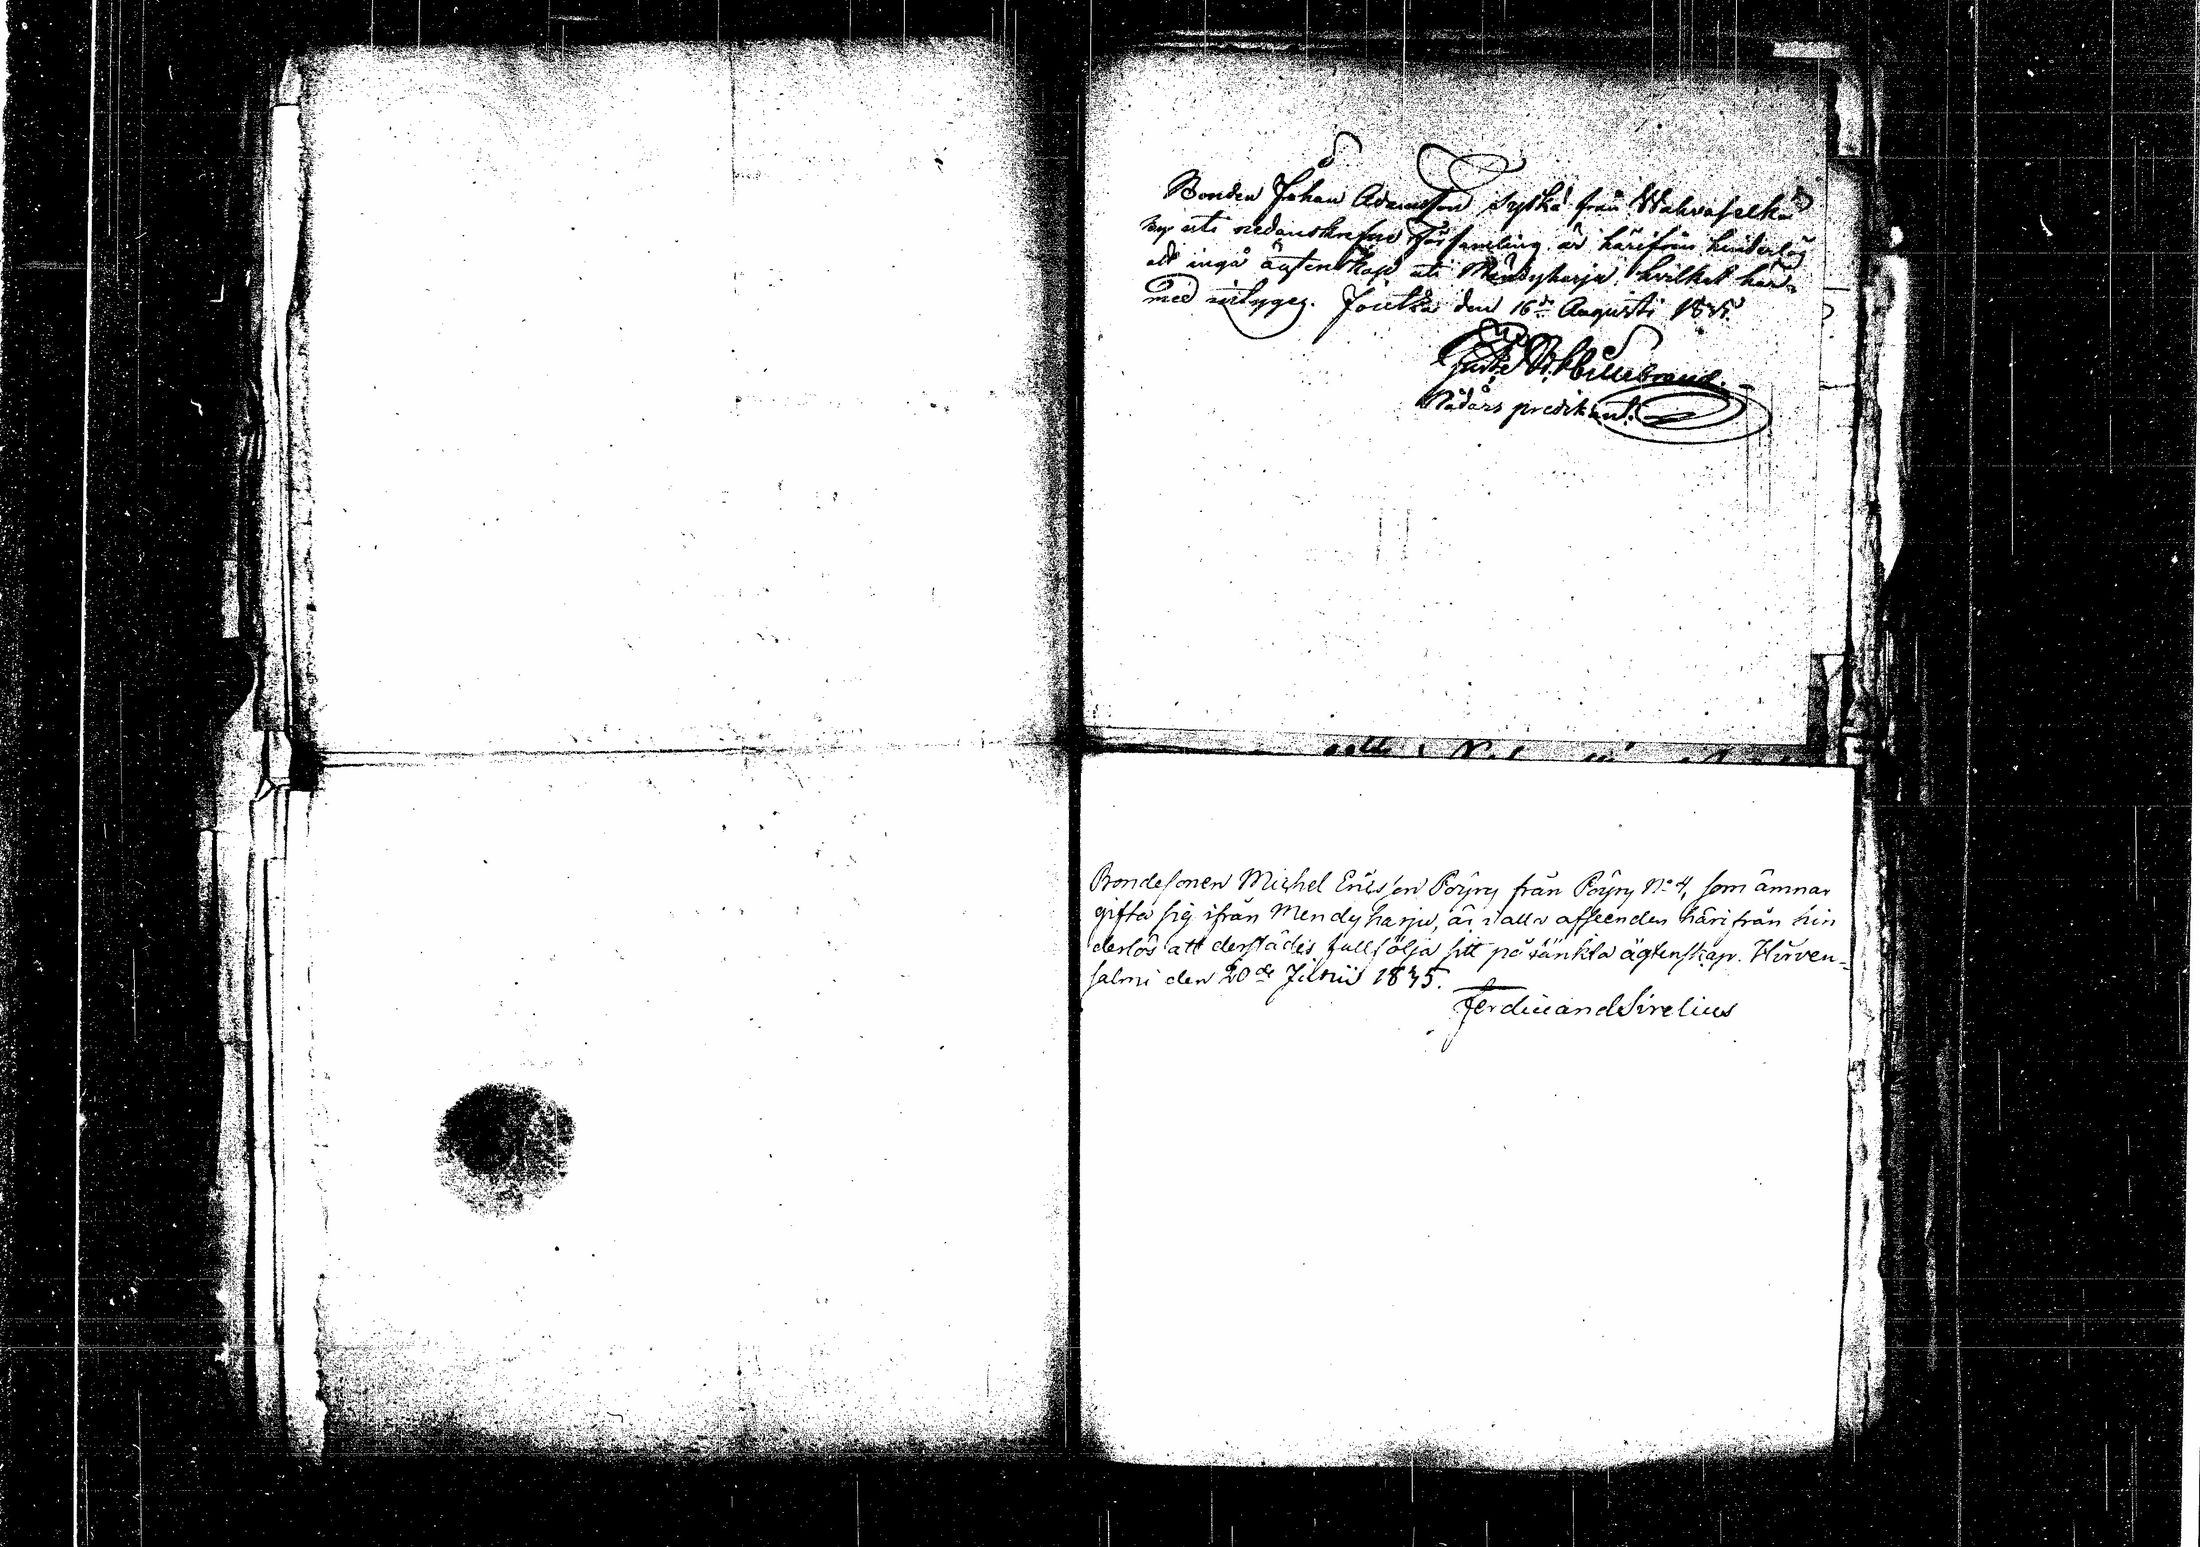 Bonden Johan Adamsson Sytkä från Wahvaselkä
by uti nedanskrefne Församling är härifrån hinderlös
att ingå ägtenskap uti Mändyharju hvilket här-
med intygas. Joutsa den 16de Augusti 1835.
Gustaf Hillebrand.
Nådårs predikant.
Bondesonen Michel Ericsson Pöyry från Pöyry No 4, som ämnar
gifta sig ifrån Mendyharju, är i alla afseenden härifrån hin
derlös att derstädes fullfölja sitt påtänkta ägtenskap. Hirven-
salmi den 20de Junii 1835.
Ferdinand Sirelius